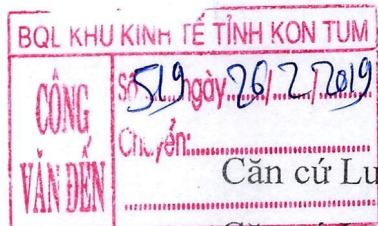 BQL KHU KINH TẾ TỈNH KON TUM
CÔNG VĂN ĐẾN
Số 519 ngày 26/2/2019
Chuyển:
Căn cứ Lu